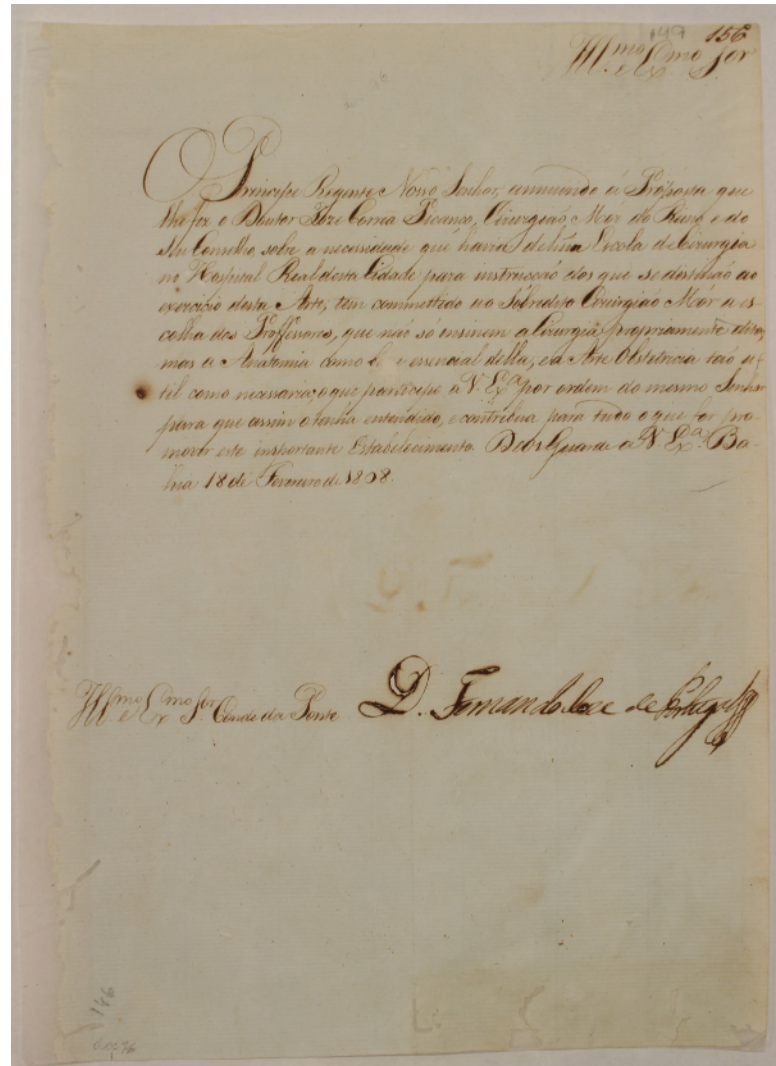 149 156
Ill.mo e Ex.mo Snr
O Principe Regente Nosso Senhor, annuindo á Proposta que
lhe fez o Doutor Joze Correa Picanço, Cirurgião Mór do Reino, e do
Seu Conselho, sobre a necessidade que havia de huã Escola de Cirurgia
no Hospital Real desta Cidade para instrucção dos que se destinão ao
exercicio desta Arte, tem commettido ao Sobredito Cirurgião Mór a es-
colha dos Professores, que não só insinem a Cirurgia propriamente dita,
mas a Anatomia como base essencial della, e a Arte Obstetricia tão u-
til como necessaria; o que participo a V. Ex.a por ordem do mesmo Senhor
para que assim o tenha entendido, e contribua para tudo o que for pro-
mover este importante Estabelecimento. Deos Guarde a V. Ex.a Ba-
hia 18 de Fevereiro de 1808.
Ill.mo e Ex.mo Snr. Conde da Ponte D. Fernando Joze de Portugal
146
doc 76